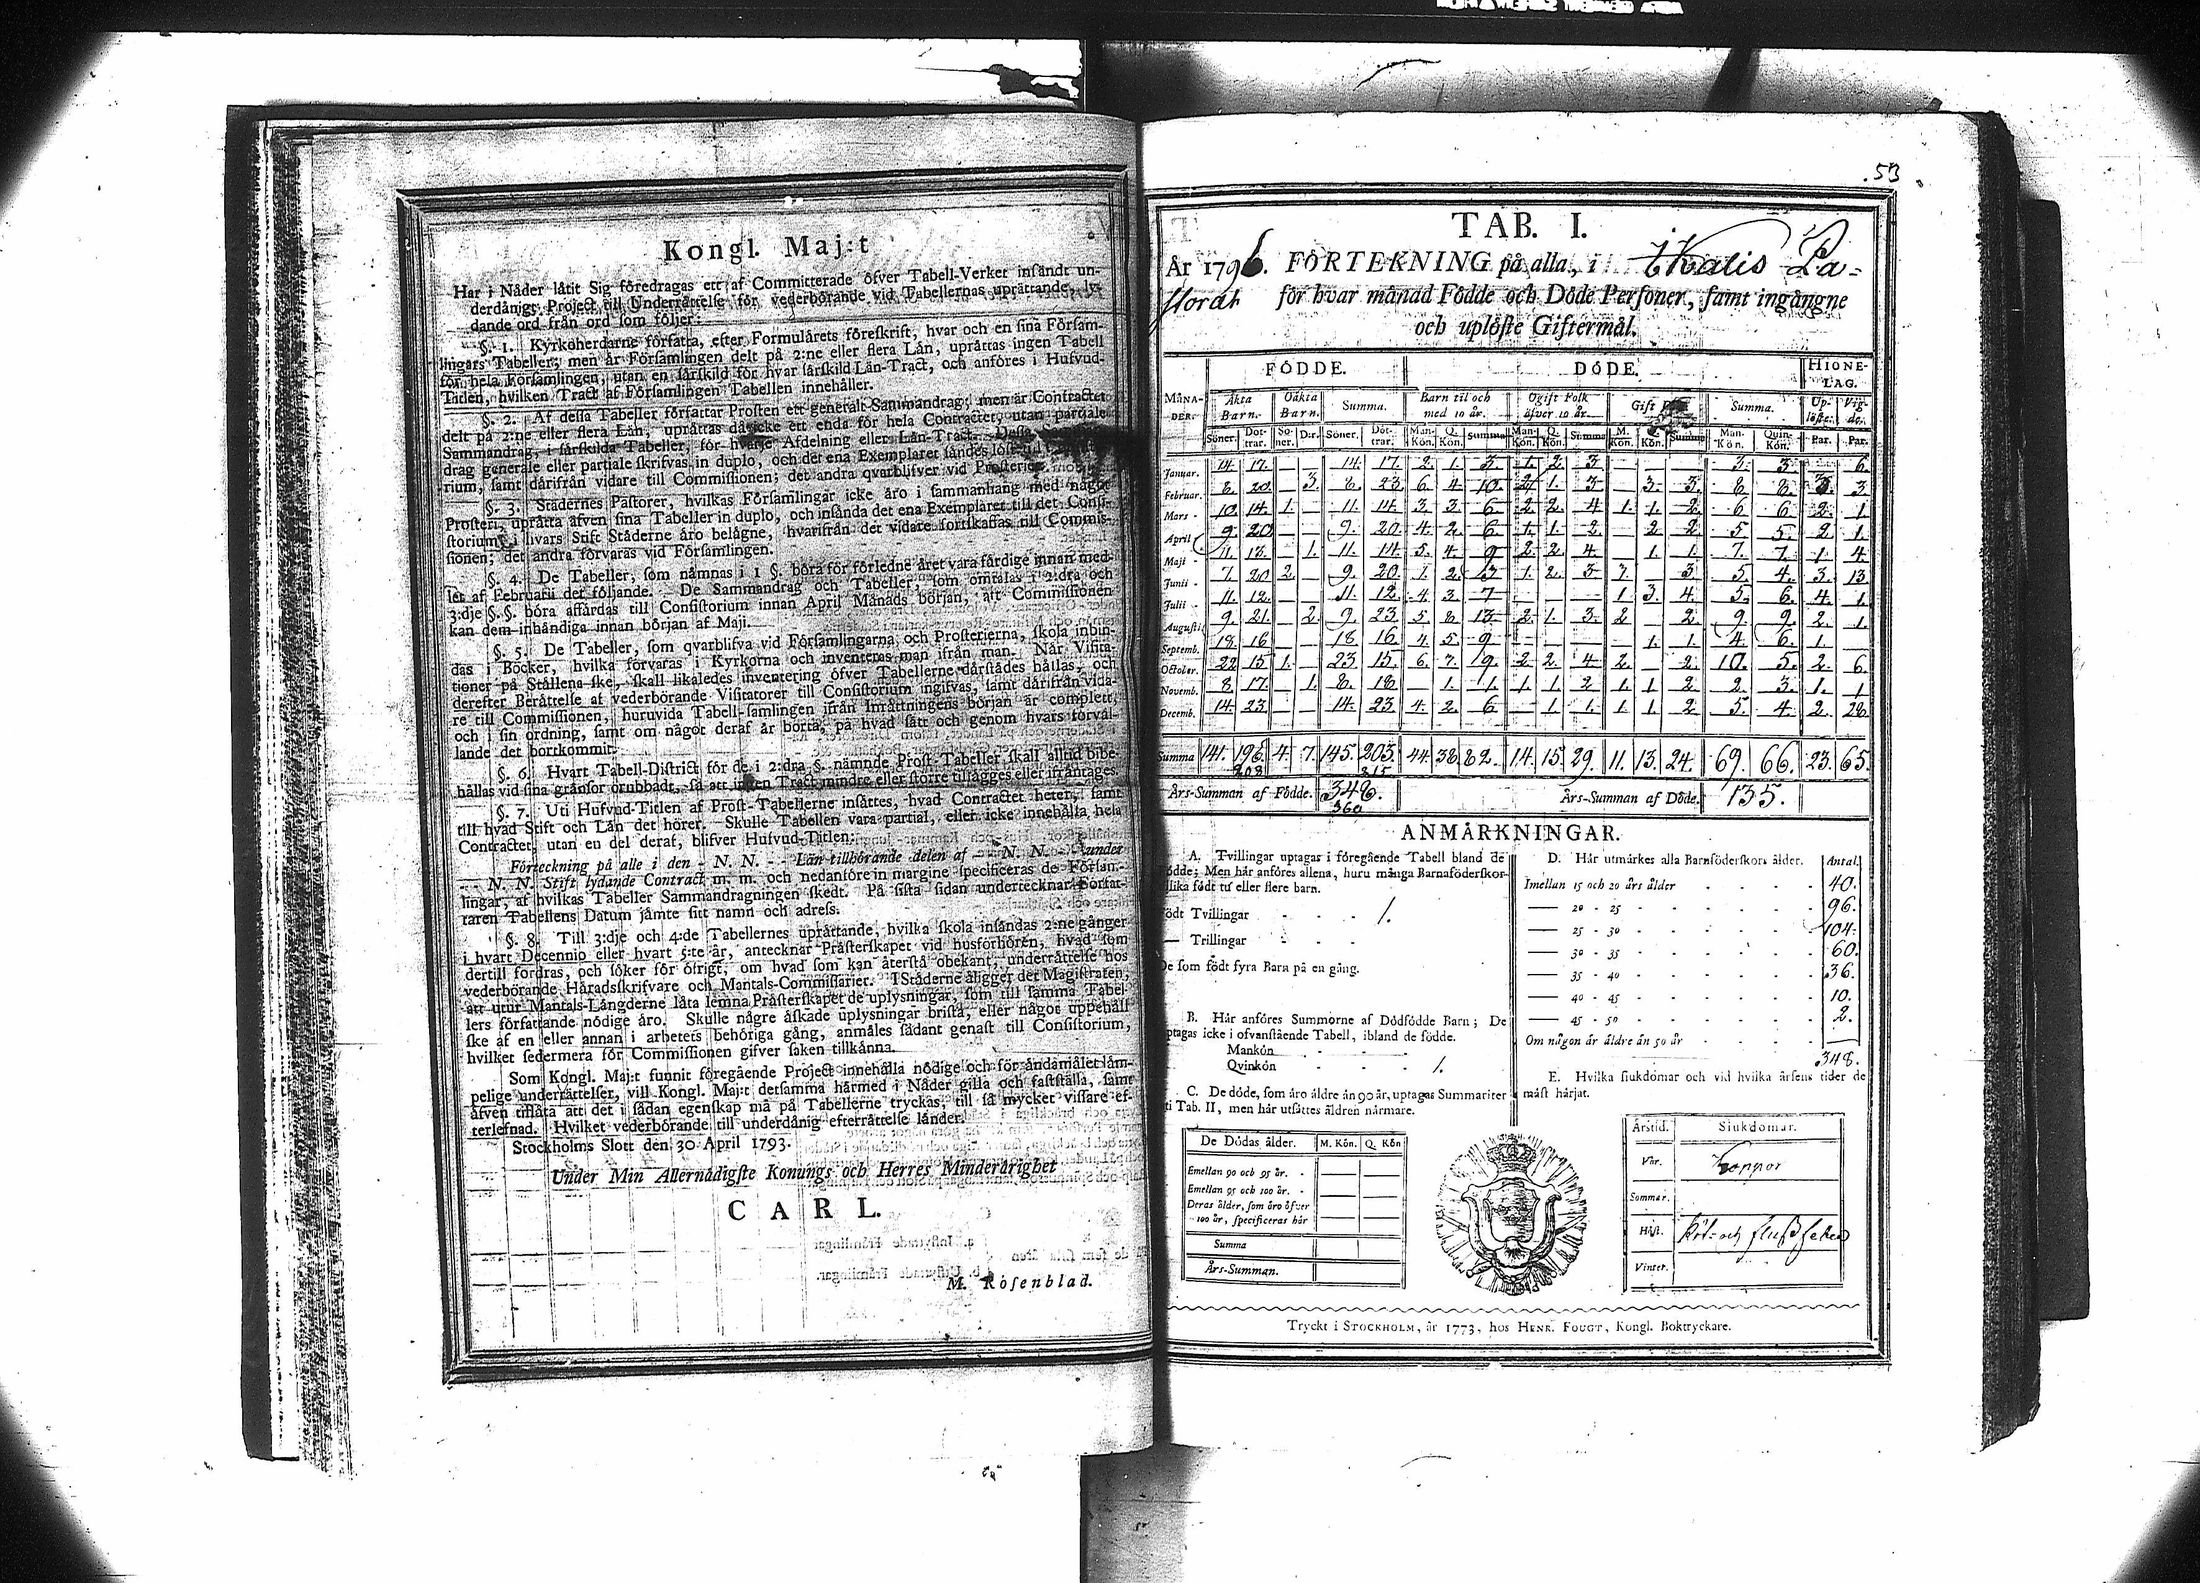 Kongl. Maj:t
Har i Nåder låtit Sig föredragas ett af Committerade öfver Tabell-Verket insändt un-
derdånigt Project till Underrättelse för vederbörande vid Tabellernas uprättande, ly-
dande ord från ord som följer:
§. 1. Kyrkoherdarne författa, efter Formulärets föreskrift, hvar och en sina Försam-
lingars Tabeller; men är Församlingen delt på 2:ne eller flera Län, uprättas ingen Tabell
för hela Församlingen, utan en särskild för hvar särskild Län-Tract, och anföres i Hufvud-
Titlen, hvilken Tract af Församlingen Tabellen innehåller.
§. 2. Af dessa Tabeller författar Prosten ett generalt Sammandrag; men är Contractet
delt på 2:ne eller flera Län, uprättas då icke ett enda för hela Contractet, utan partiale
Sammandrag, i särskilda Tabeller, för hvarje Afdelning eller Län-Tract. Dessa
drag generale eller partiale skrifvas in duplo, och det ena Exemplaret sändes
rium, samt därifrån vidare till Commissionen; det andra qvarblifver vid Prosteriet.
§. 3. Städernes Pastorer, hvilkas Församlingar icke äro i sammanhang med något
Prosteri, uprätta äfven sina Tabeller in duplo, och insända det ena Exemplaret till det Consi-
storium, i hvars Stift Städerne äro belägne, hvarifrån det vidare fortskaffas till Commis-
sionen; det andra förvaras vid Församlingen.
§. 4. De Tabeller, som nämnas i 1 §. böra för förledne året vara färdige innan med-
let af Februarii det följande. De Sammandrag och Tabeller, som omtalas i 2:dra och
3:dje §.§. böra affärdas till Consistorium innan April Månads början, att Commissionen
kan dem inhändiga innan början af Maji.
§. 5. De Tabeller, som qvarblifva vid Församlingarna och Prosterierna, skola inbin-
das i Böcker, hvilka förvaras i Kyrkorna och inventeras man ifrån man. När Visita-
tioner på Ställena ske, skall likaledes inventering öfver Tabellerne därstädes hållas, och
derefter Berättelse af vederbörande Visitatorer till Consistorium ingifvas, samt därifrån vida-
re till Commissionen, huruvida Tabell-samlingen ifrån Inrättningens början är complett,
och i sin ordning, samt om något deraf är borta, på hvad sätt och genom hvars förvål-
lande det bortkommit.
§. 6. Hvart Tabell-District för de i 2:dra §. nämnde Prost-Tabeller skall alltid bibe-
hållas vid sina gränsor orubbadt, så att ingen Tract mindre eller större tillägges eller ifråntages.
§. 7. Uti Hufvud-Titlen af Prost-Tabellerne insättes, hvad Contractet heter, samt
till hvad Stift och Län det hörer. Skulle Tabellen vara partial, eller icke innehålla hela
Contractet, utan en del deraf, blifver Hufvud-Titlen:
Förteckning på alle i den - N. N. - - Län tillhörande delen af - - N. N. - - under
- - N. N. Stift lydande Contract m. m. och nedanföre in margine specificeras de Försam-
lingar, af hvilkas Tabeller Sammandragningen skedt. På sista sidan undertecknar Förfat-
taren Tabellens Datum jämte sitt namn och adress.
§. 8. Till 3:dje och 4:de Tabellernes uprättande, hvilka skola insändas 2:ne gånger
i hvart Decennio eller hvart 5:te år, antecknar Prästerskapet vid husförhören, hvad som
dertill fordras, och söker för öfrigt, om hvad som kan återstå obekant, underrättelse hos
vederbörande Häradsskrifvare och Mantals-Commissarier. I Städerne åligger det Magistraten,
att utur Mantals-Längderne låta lemna Prästerskapet de uplysningar, som till samma Tabel-
lers författande nödige äro. Skulle någre äskade uplysningar brista, eller något uppehåll
ske af en eller annan i arbetets behöriga gång, anmäles sådant genast till Consistorium,
hvilket sedermera för Commissionen gifver saken tillkänna.
Som Kongl. Maj:t funnit föregående Project innehålla nödige och för ändamålet läm-
pelige underrättelser, vill Kongl. Maj:t detsamma härmed i Nåder gilla och fastställa, samt
äfven tillåta att det i sådan egenskap må på Tabellerne tryckas, till så mycket vissare ef-
terlefnad. Hvilket vederbörande till underdånig efterrättelse länder.
Stockholms Slott den 30 April 1793.
Under Min Allernådigste Konungs och Herres Minderårighet
CARL.
M. Rosenblad.
53
TAB. I.
År 1796. FÖRTEKNING på alla, i Kalis Pa-
storat för hvar månad Födde och Döde Personer, samt ingångne
och uplöste Giftermål.
MÅNA-DER. FÖDDE. DÖDE. HIONE-LAG.
Äkta Barn. Oäkta Barn. Summa. Barn til och med 10 år. Ogift Folk öfver 10 år. Gift Summa. Up-löste. Vig-de.
Söner. Dot-trar. So-ner. D:r. Söner. Döt-trar. Man-Kön. Q. Kön. Summa Man-Kön. Q. Kön. Summa M. Kön. Q. Kön. Summa Man-Kön. Quin-Kön. Par. Par.
Januar. 14. 17. 14. 17. 2. 1. 3. 1. 2. 3. 3. 3. 6.
Februar. 8. 20. 3. 8. 23. 6. 4. 10. 2. 1. 3. 3. 3. 8. 8. 3. 3.
Mars 10. 14. 1. 11. 14. 3. 3. 6. 2. 2. 4. 1. 1. 2. 6. 6. 2. 1.
April 9. 20. 9. 20. 4. 2. 6. 1. 1. 2. 2. 2. 5. 5. 2. 1.
Maji 11. 13. 1. 11. 14. 5. 4. 9. 2. 2. 4. 1. 1. 7. 7. 1. 4.
Junii 7. 20. 2. 9. 20. 1. 2. 3. 1. 2. 3. 3. 3. 5. 4. 3. 13.
Julii 11. 12. 11. 12. 4. 3. 7. 1. 3. 4. 5. 6. 4. 1.
Augusti 9. 21. 2. 9. 23. 5. 8. 13. 2. 1. 3. 2. 2. 9. 9. 2. 1.
Septemb. 18. 16. 18. 16. 4. 5. 9. 1. 1. 4. 6. 1.
October. 22. 15. 1. 23. 15. 6. 3. 9. 2. 2. 4. 2. 2. 10. 5. 2. 6.
Novemb. 8. 17. 1. 8. 18. 1. 1. 1. 1. 2. 1. 1. 2. 2. 3. 1. 1.
Decemb. 14. 23. 14. 23. 4. 2. 6. 1. 1. 1. 1. 2. 5. 4. 2. 28.
Summa 141. 196. 4. 7. 145. 203. 44. 38. 82. 14. 15. 29. 11. 13. 24. 69. 66. 23. 65.
208 215
Års-Summan af Födde. 348. Års-Summan af Döde. 135.
360
ANMÄRKNINGAR.
A. Tvillingar uptagas i föregående Tabell bland de
födde; Men här anföres allena, huru många Barnaföderskor
slika födt två eller flere barn.
Födt Tvillingar - - - 1.
— Trillingar - -
De som födt fyra Barn på en gång.
B. Här anföres Summorne af Dödfödde Barn; De
uptagas icke i ofvanstående Tabell, ibland de födde.
Mankön - - -
Qvinkön - - - 1.
C. De döde, som äro äldre än 90 år, uptagas Summariter
i Tab. II, men här utsättes åldren närmare.
De Dödas ålder. M. Kön. Q. Kön
Emellan 90 och 95 år. -
Emellan 95 och 100 år. -
Deras ålder, som äro öfver
100 år, specificeras här
Summa
Års-Summan.
D. Här utmärkes alla Barnföderskors ålder. Antal.
Imellan 15 och 20 års ålder 40.
— 20 - 25 96.
— 25 - 30 104.
— 30 - 35 60.
— 35 - 40 36.
— 40 - 45 10.
— 45 - 50 2.
Om någon är äldre än 50 år —
348.
E. Hvilka siukdomar och vid hvilka årsens tider de
mäst härjat.
Årstid. Siukdomar.
Vår. Koppor
Sommar.
Höst. Röt- och flussfeber
Vinter.
Tryckt i STOCKHOLM, år 1773, hos HENR. FOUGT, Kongl. Boktryckare.